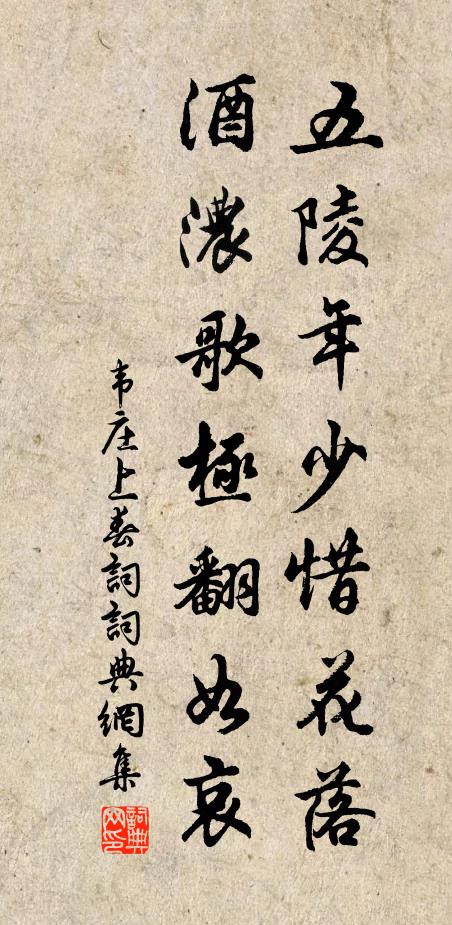 五陵年少惜花落
酒濃歌極翻如哀
韦庄上春詞詞典網集
詞典网印